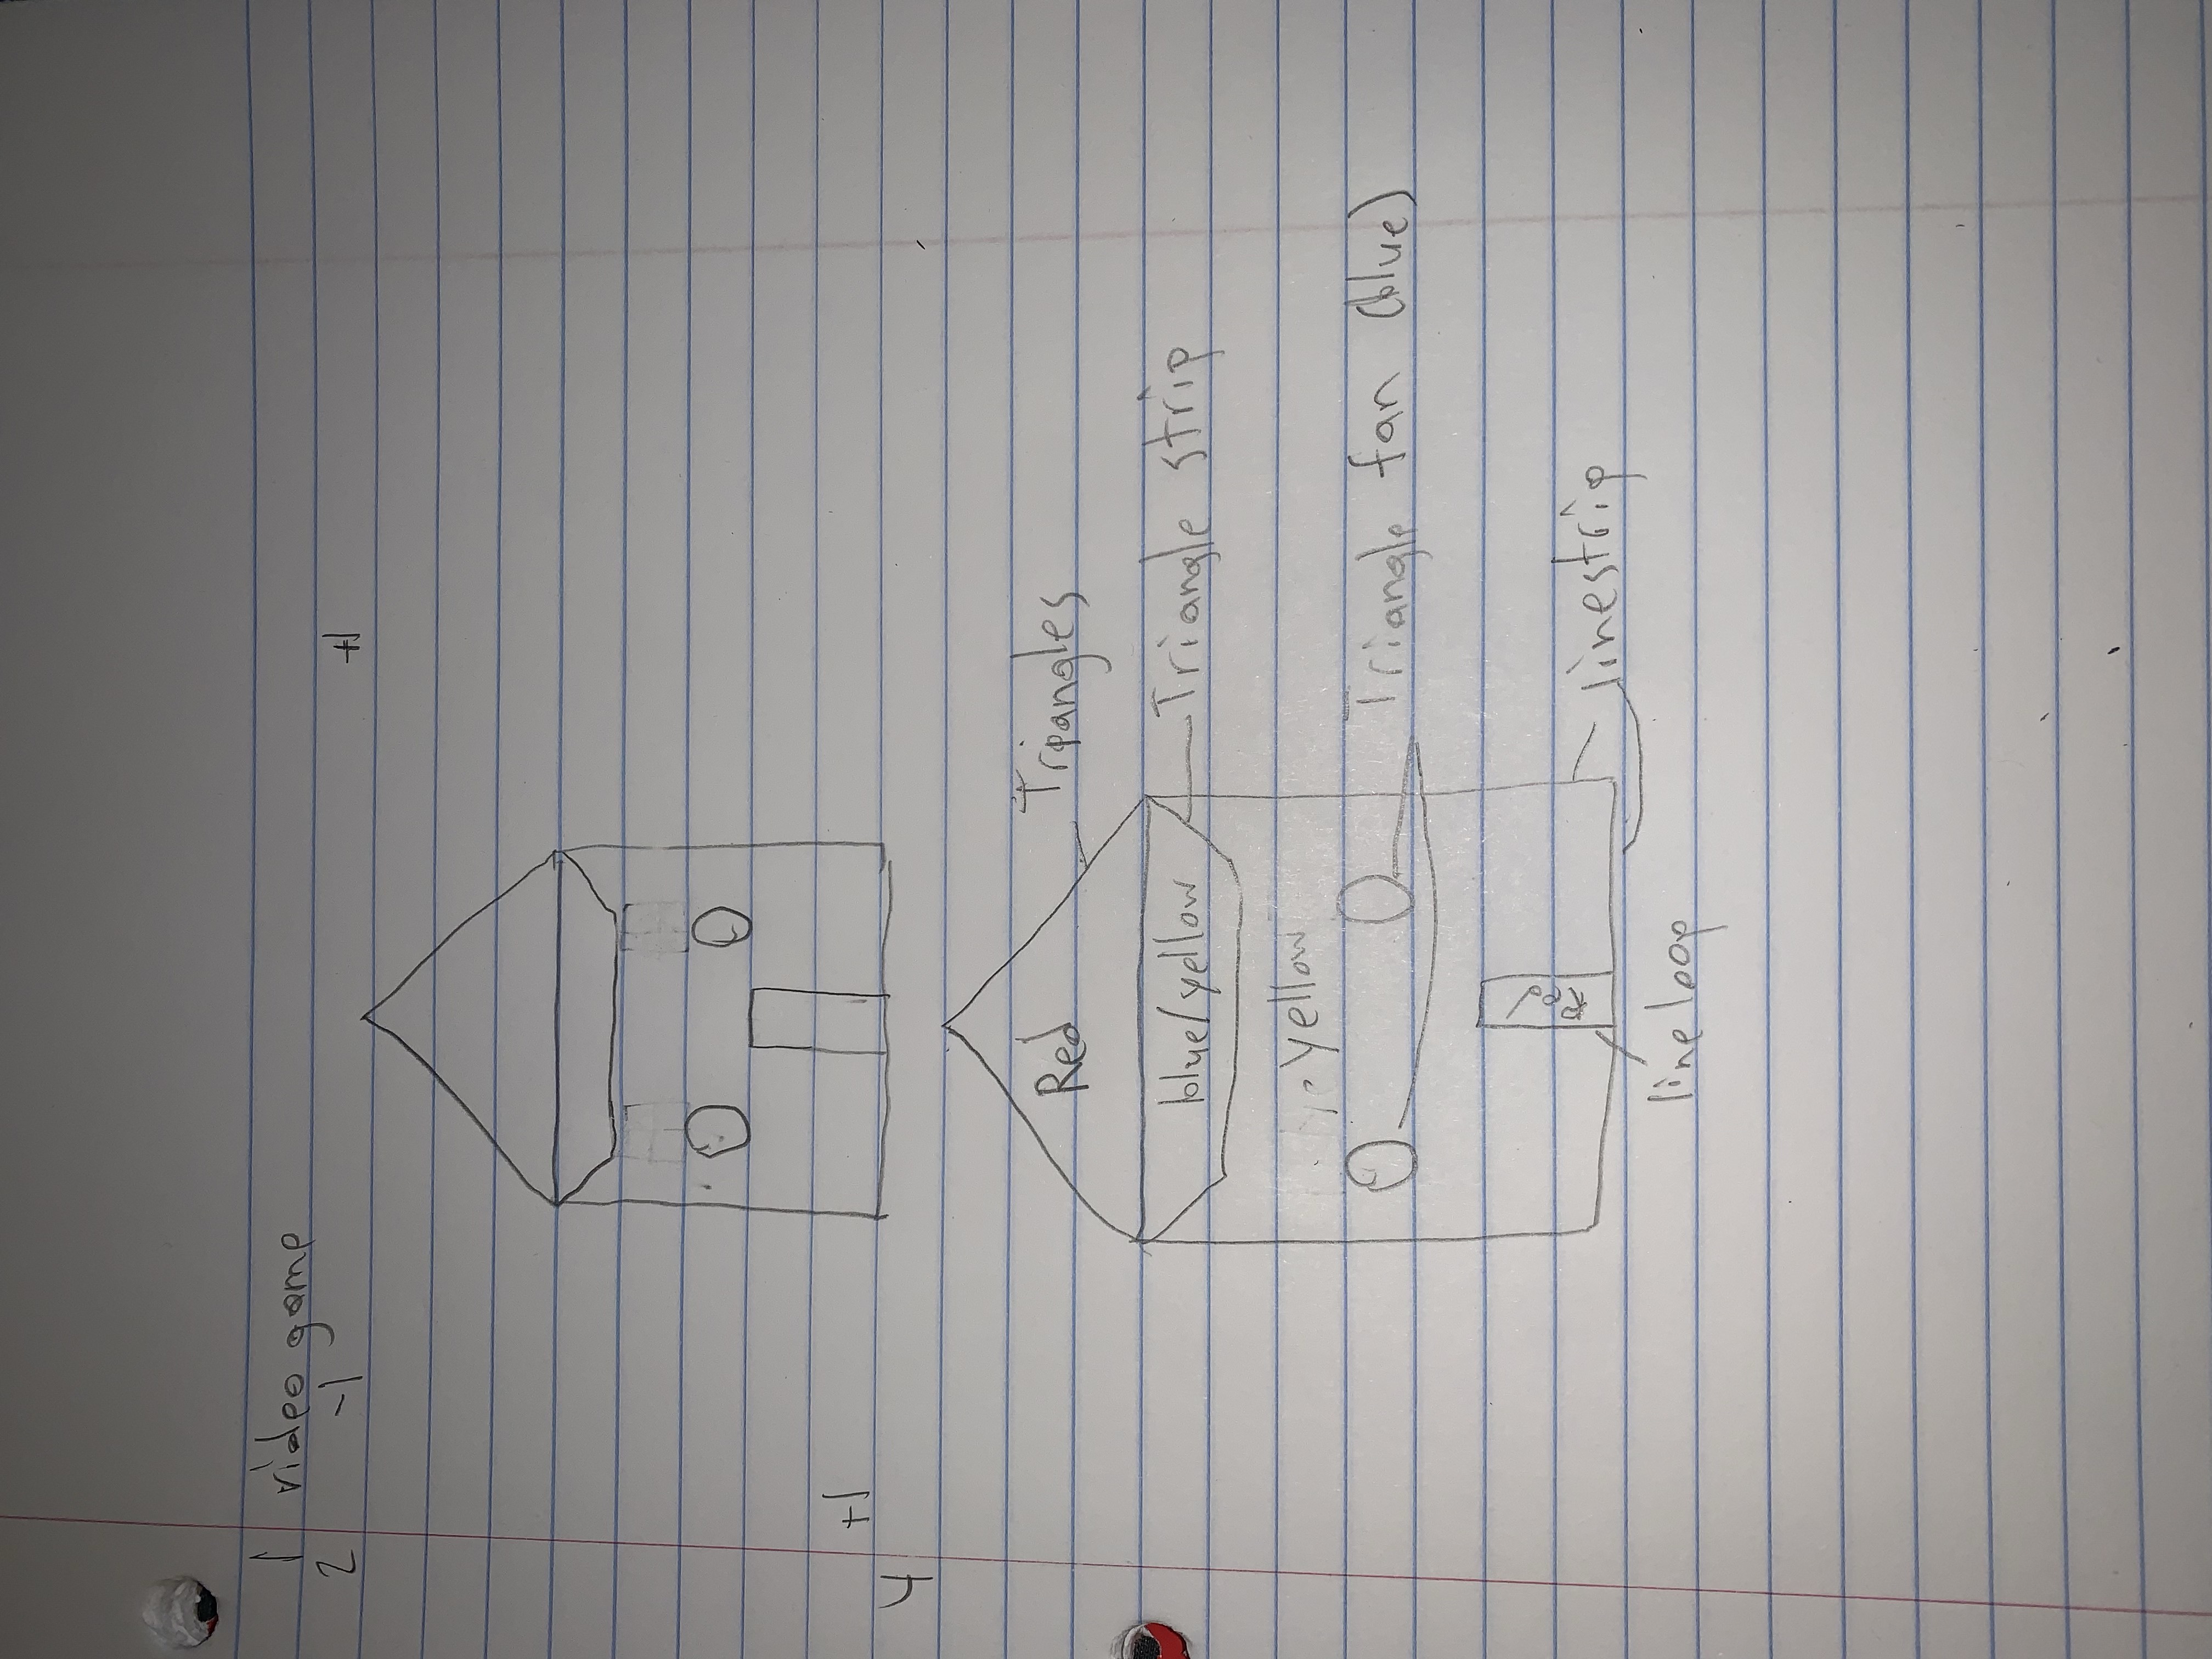 1 video game
2 -1 +1
+1
4
Red Triangles
blue/yellow Triangle strip
yellow
Triangle fan (blue)
Red
linestrip
line loop